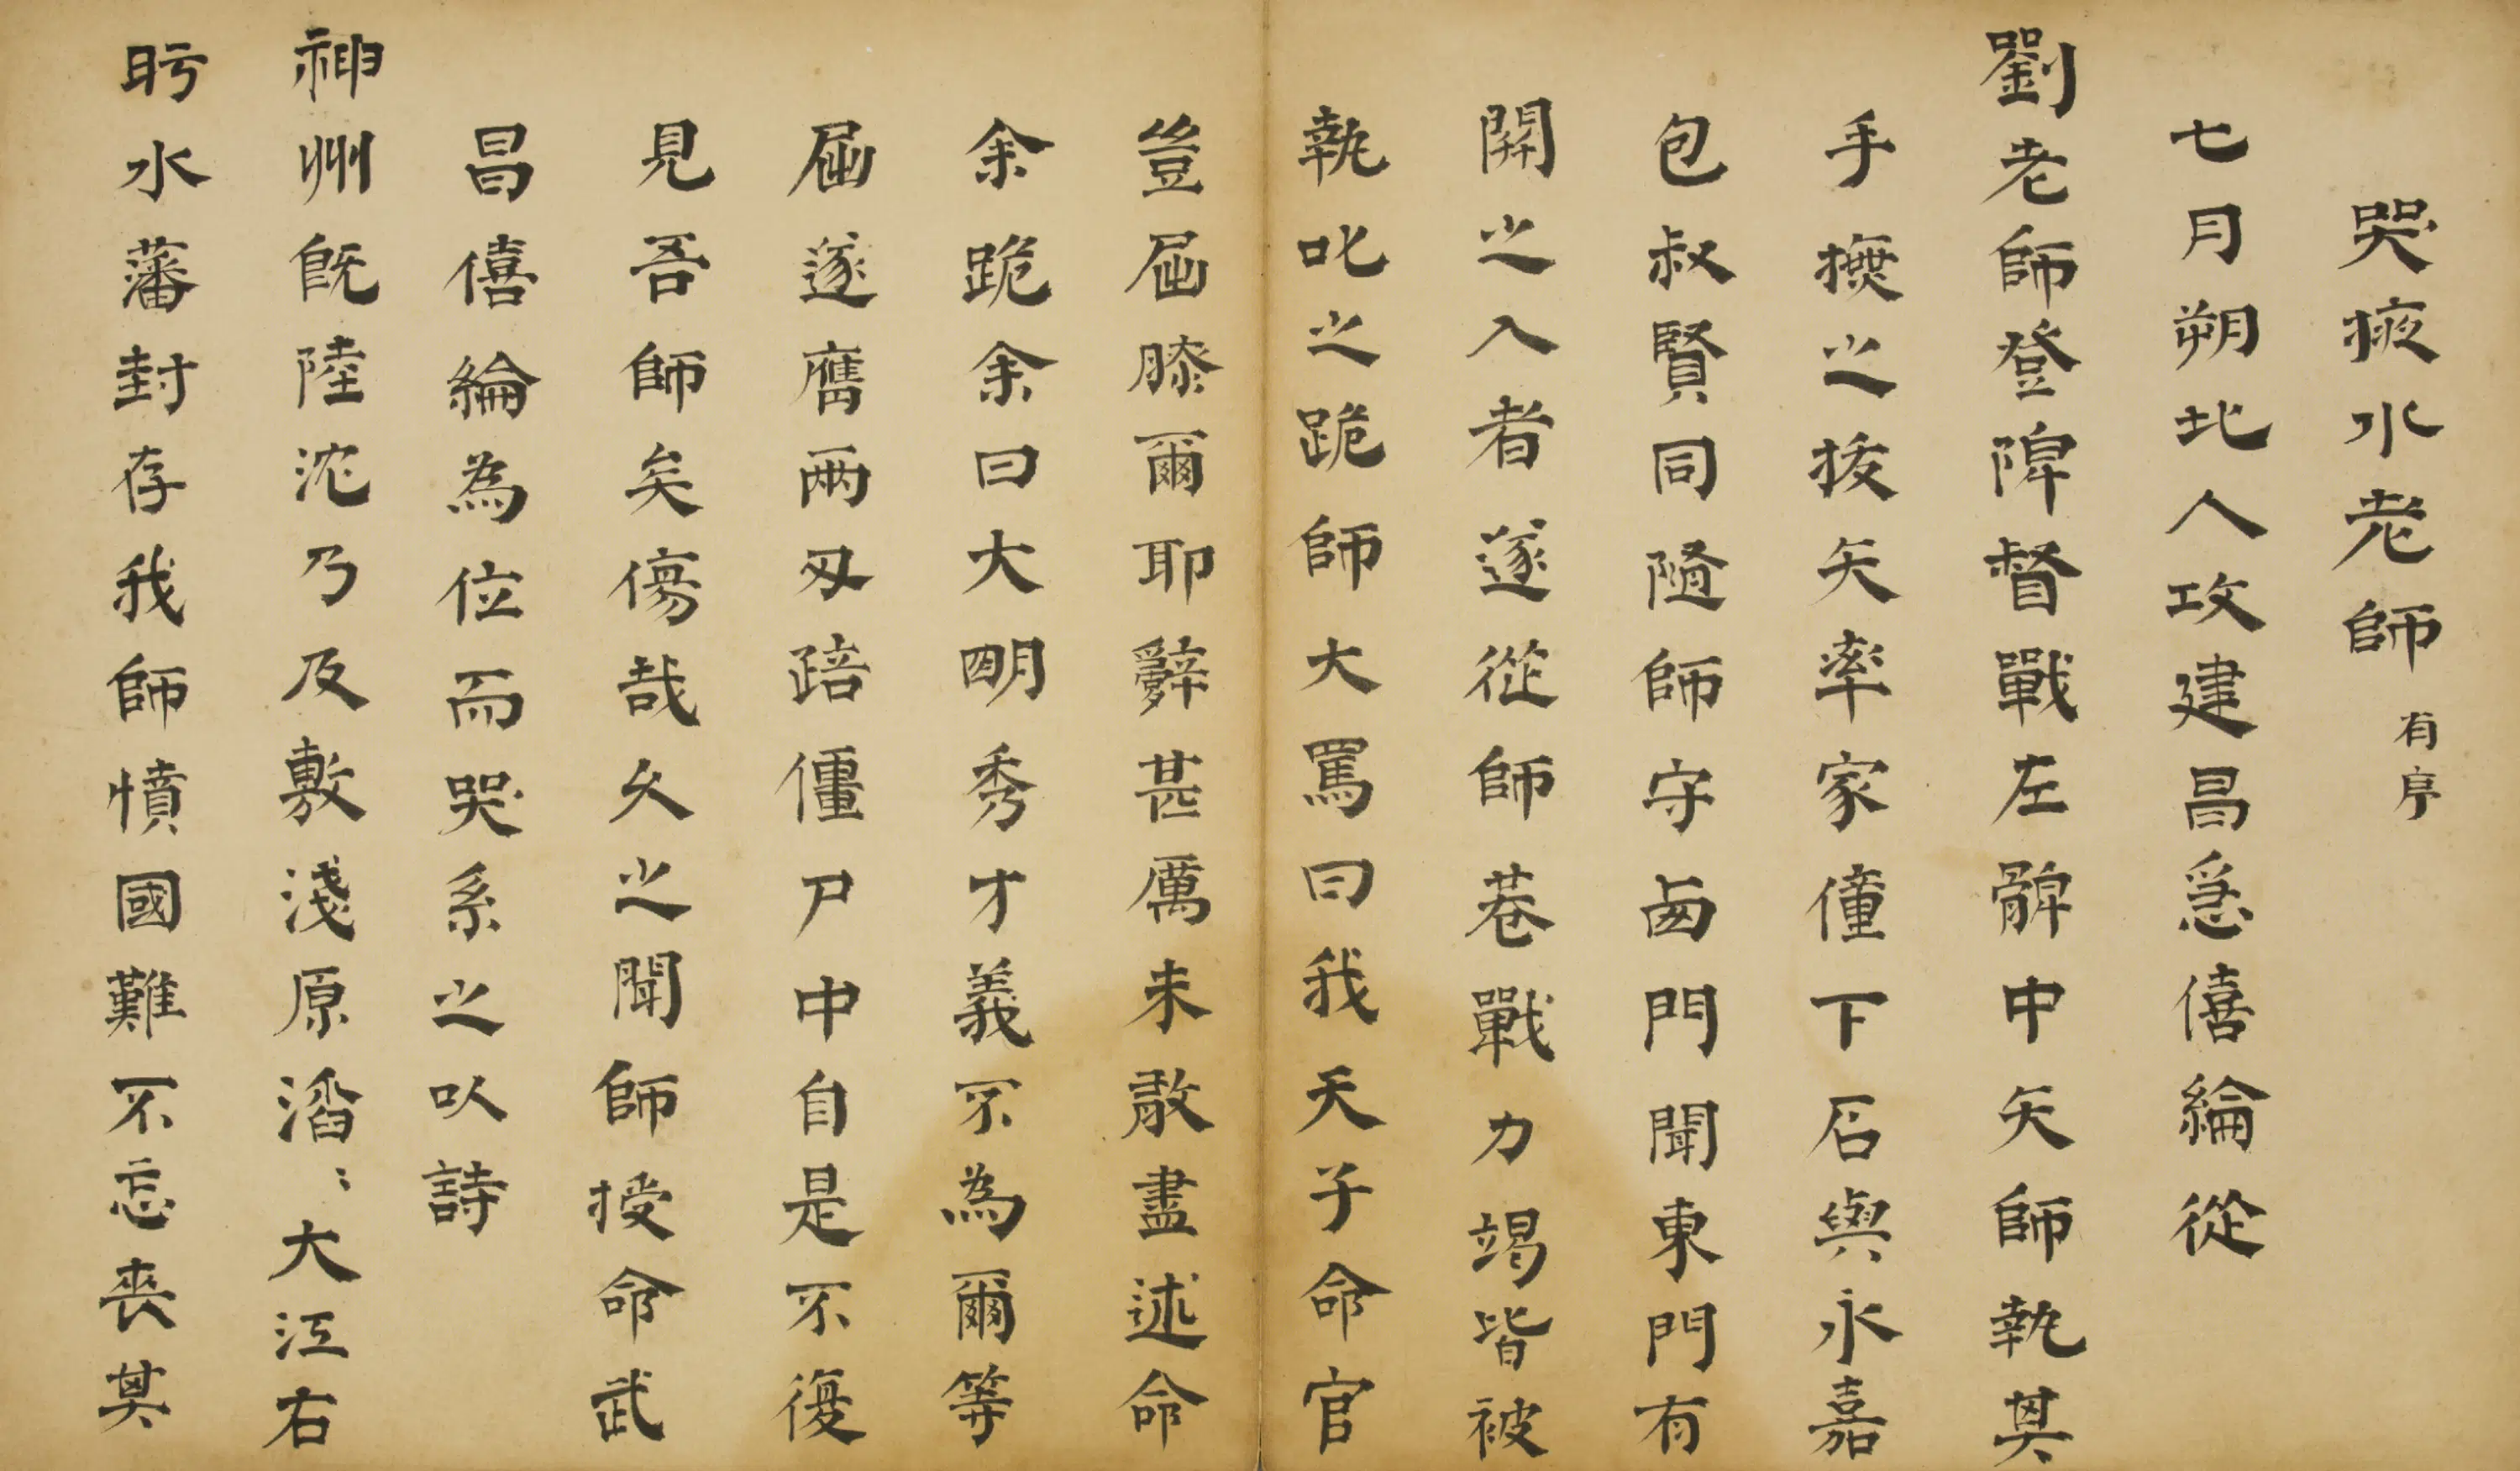 哭掖水老師 有序
七月朔北人攻建昌急僖綸從
劉老師登陴督戰左髀中矢師執其
手撫之拔矢率家僮下石與永嘉
包叔賢同隨師守西門聞東門有
開之入者遂從師巷戰力竭皆被
執叱之跪師大罵曰我天子命官
豈屈膝爾耶辭甚厲未敢盡述命
余跪余曰大明秀才義不為爾等
屈遂膺兩刃踣僵尸中自是不復
見吾師矣傷哉久之聞師授命武
昌僖綸為位而哭系之以詩
神州既陸沈乃及敷淺原滔滔大江右
盱水藩封存我師憤國難不忘喪其